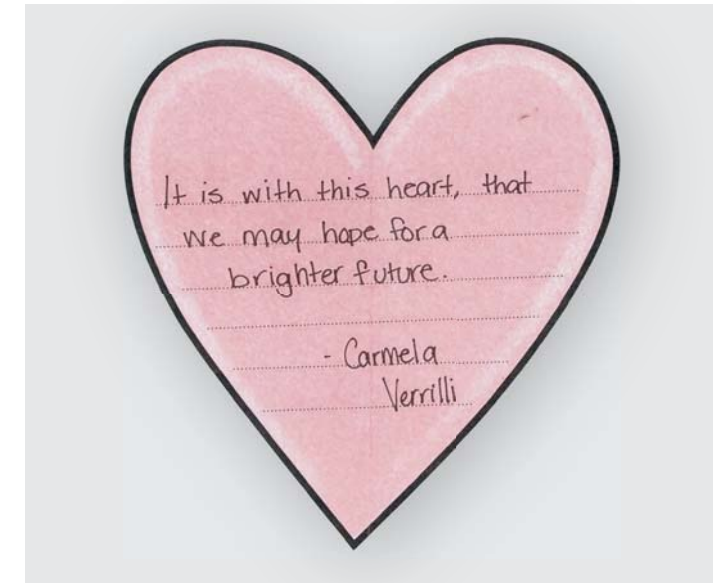 It is with this heart, that
we may hope for a
brighter future.
- Carmela
Verrilli